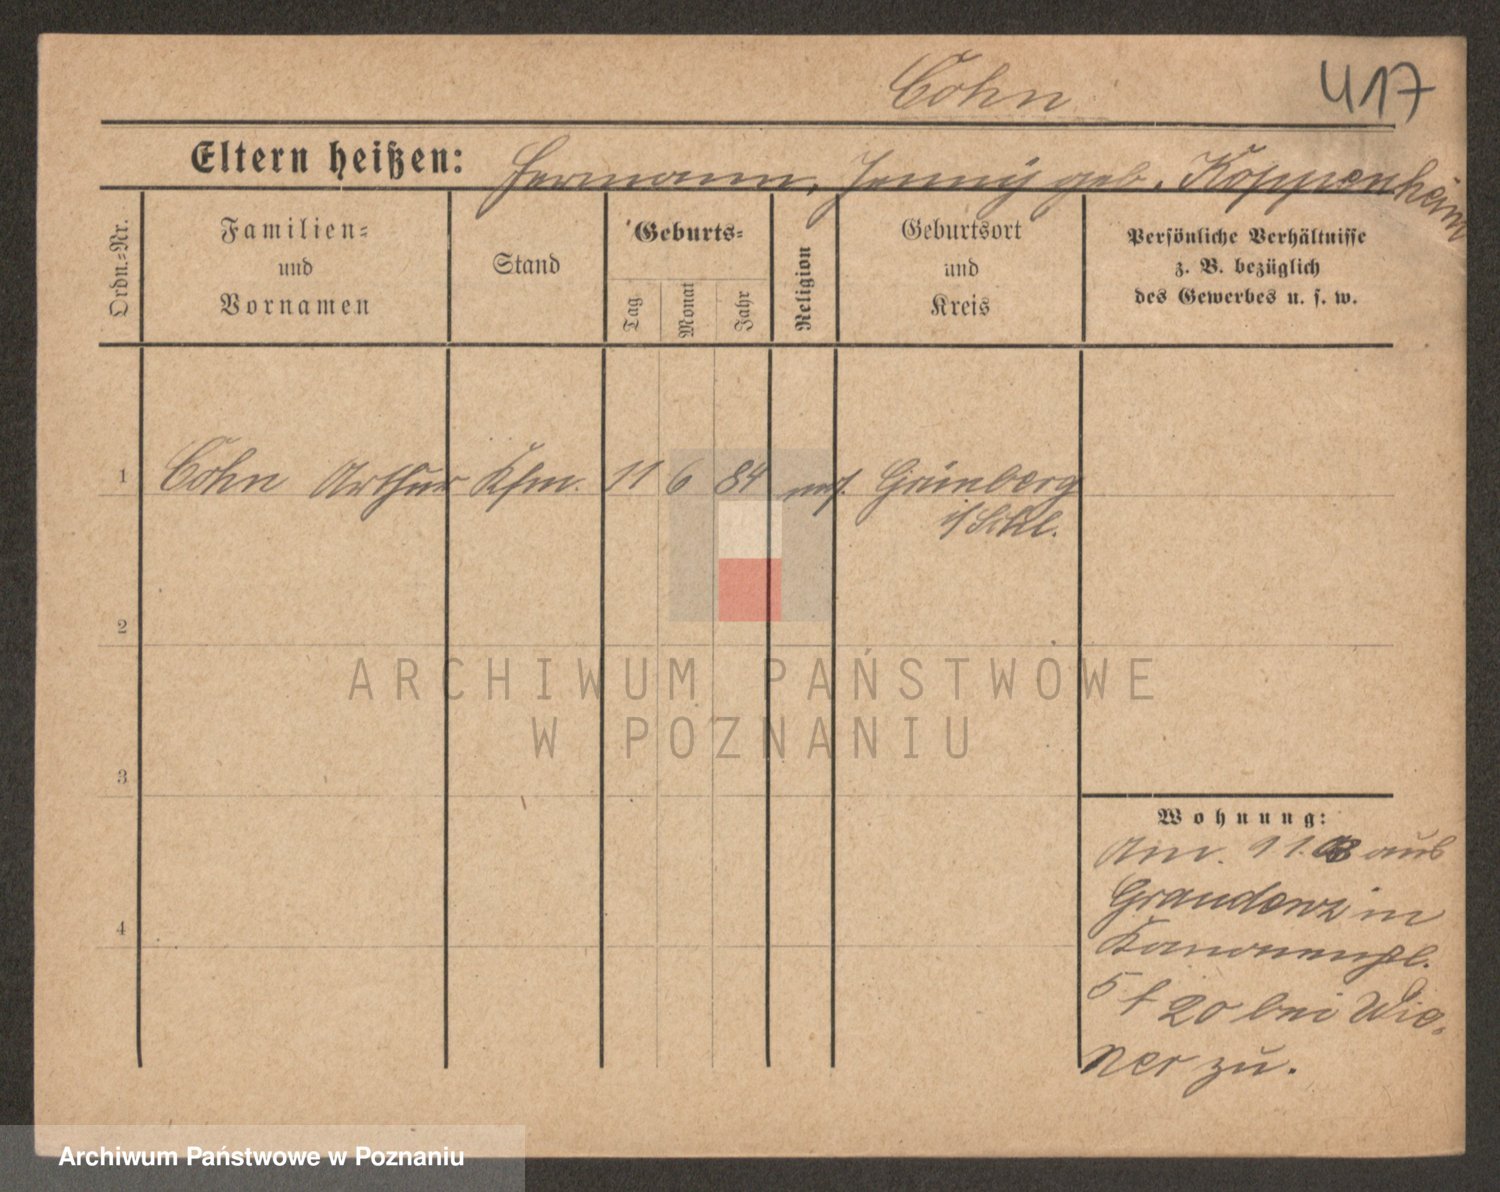 Cohn
417
Eltern heißen: Hermann, Jenny geb. Koppenheim
Ordn.-Nr.
Familien-
und
Vornamen
Stand
Geburts-
Tag
Monat
Jahr
Religion
Geburtsort
und
Kreis
Persönliche Verhältnisse
z. B. bezüglich
des Gewerbes u. s. w.
1 Cohn Arthur Kfm. 11 6 84 mos. Grünberg
i/Schl.
2
3
4
ARCHIWUM PAŃSTWOWE
W POZNANIU
Wohnung:
Am. 11. aus
Graudenz in
Kanonenpl.
5 f 20 bei Wie-
ner zu.
Archiwum Państwowe w Poznaniu